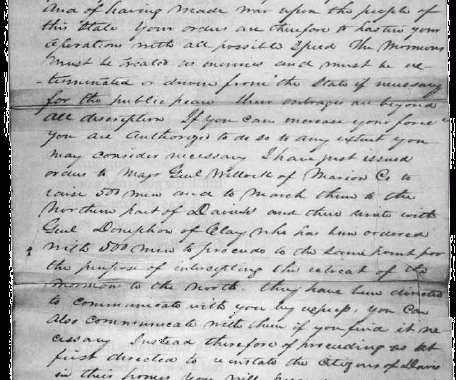 and of having made war upon the people of
this State Your orders are therefore to hasten your
operations with all possible speed The Mormons
must be treated as enemies and must be ex-
-terminated or driven from the State if necessary
for the public peace their outrages are beyond
all description If you can increase your force
you are Authorized to do so to any extent you
may consider necessary I have just issued
orders to Majr Genl Willock of Marion Co to
raise 500 men and to March them to the
Northern part of Daviess and there unite with
Genl Doniphon of Clay who has been ordered
with 500 men to proceede to the same point for
the purpose of intercepting the retreat of the
Mormon to the North. they have been directed
to communicate with you by express, you can
also communicate with them if you find it ne
cessary Instead therefore of proceeding as at
first directed to reinstate the Citizens of Davis
in their homes you will